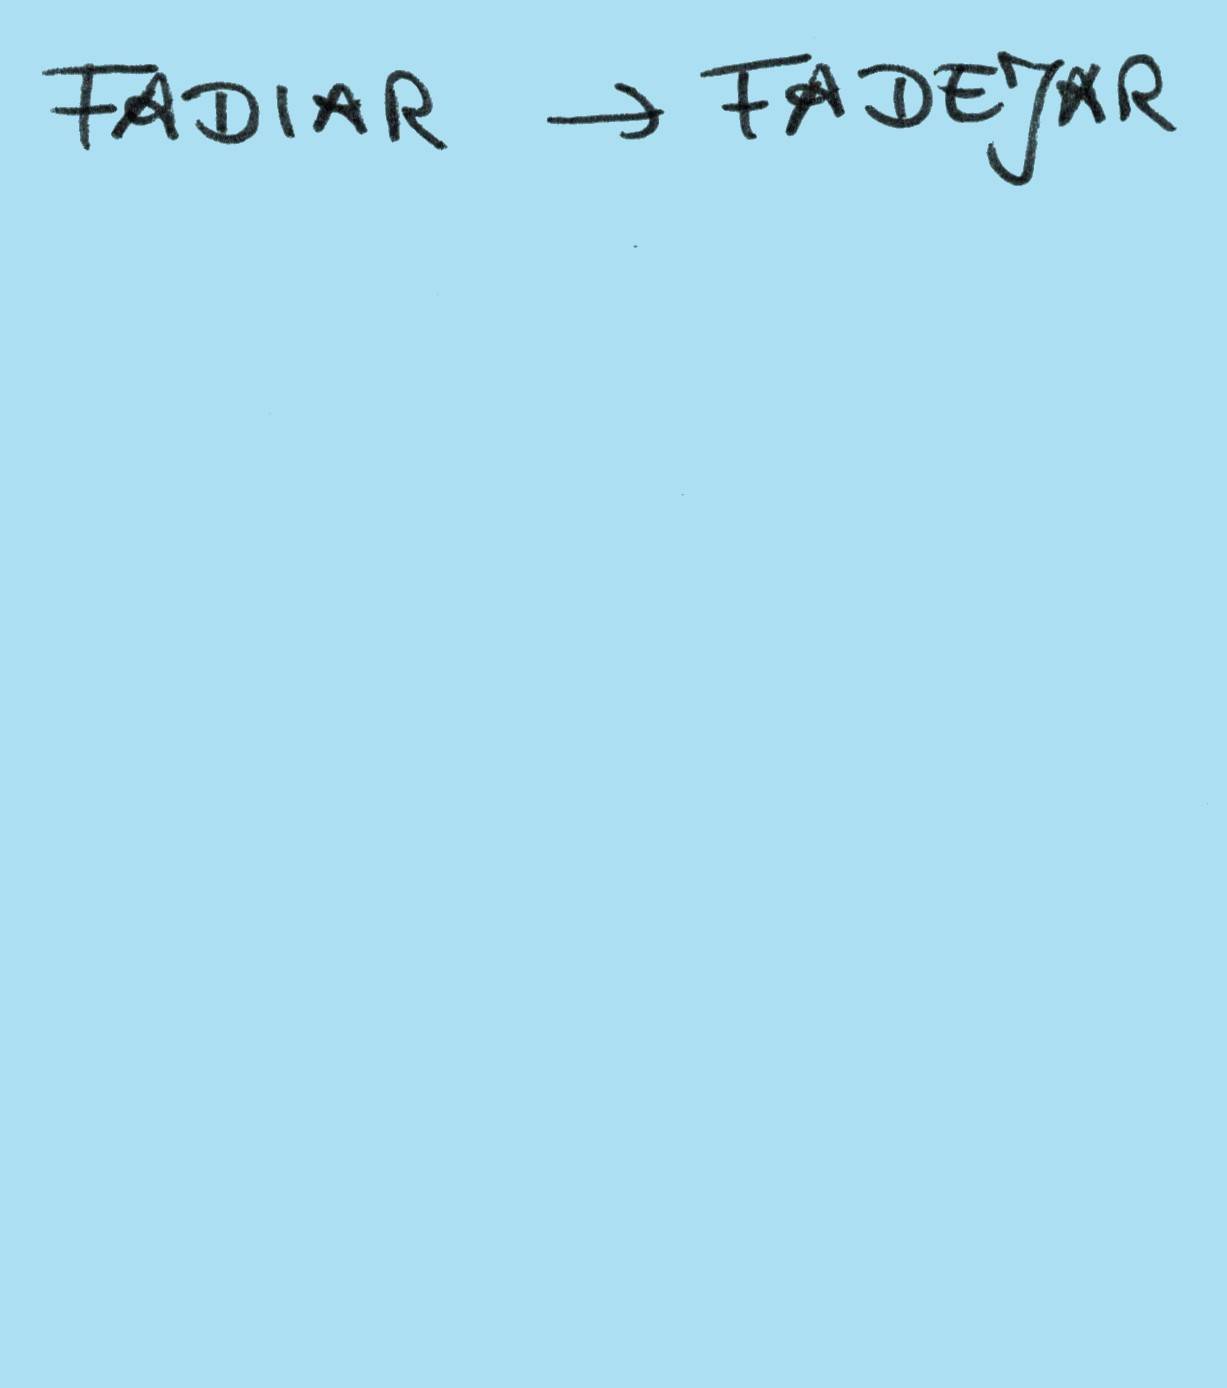 FADIAR → FADEJAR